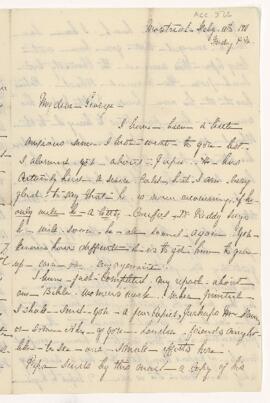 ACC 522
Montreal July 11th 1871
My dear George
I have been a little
anxious since I last wrote to you lest
I alarmed you about Papa. He has
certainly had a severe cold, but I am very
glad to say that he is now recovering. If he
only will be a little careful Dr Reddy says
he will soon be all well again. You
know how difficult it is to get him to give
up care or any
I have just completed my report about
our Bible Women's work. When printed
I shall send you a few copies, Perhaps Mr
or some other of your London friends might
like to see our small efforts here.
Papa sends by this mail a copy of his